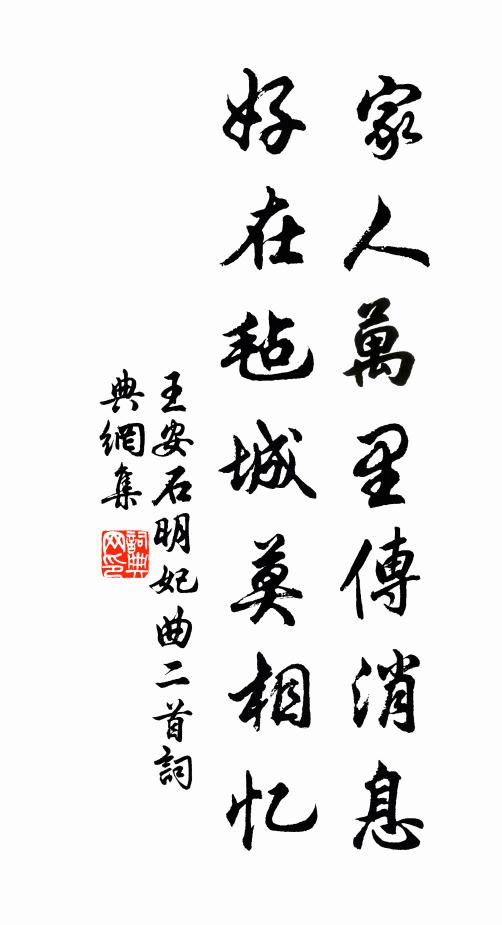 家人萬里傳消息
好在毡城莫相忆
王安石明妃曲二首詞
典網集
詞典
网印